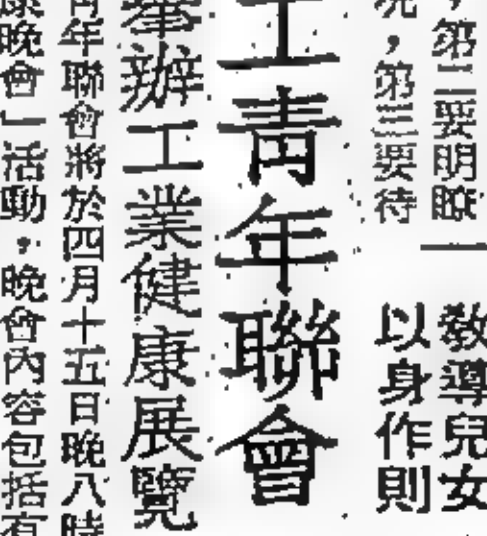 ，第二要明瞭
教導兒女
，第三要待
以身作則
工青年聯會
舉辦工業健康展覽
青年聯會將於四月十五日晚八時
康晚會」活動，晚會內容包括有